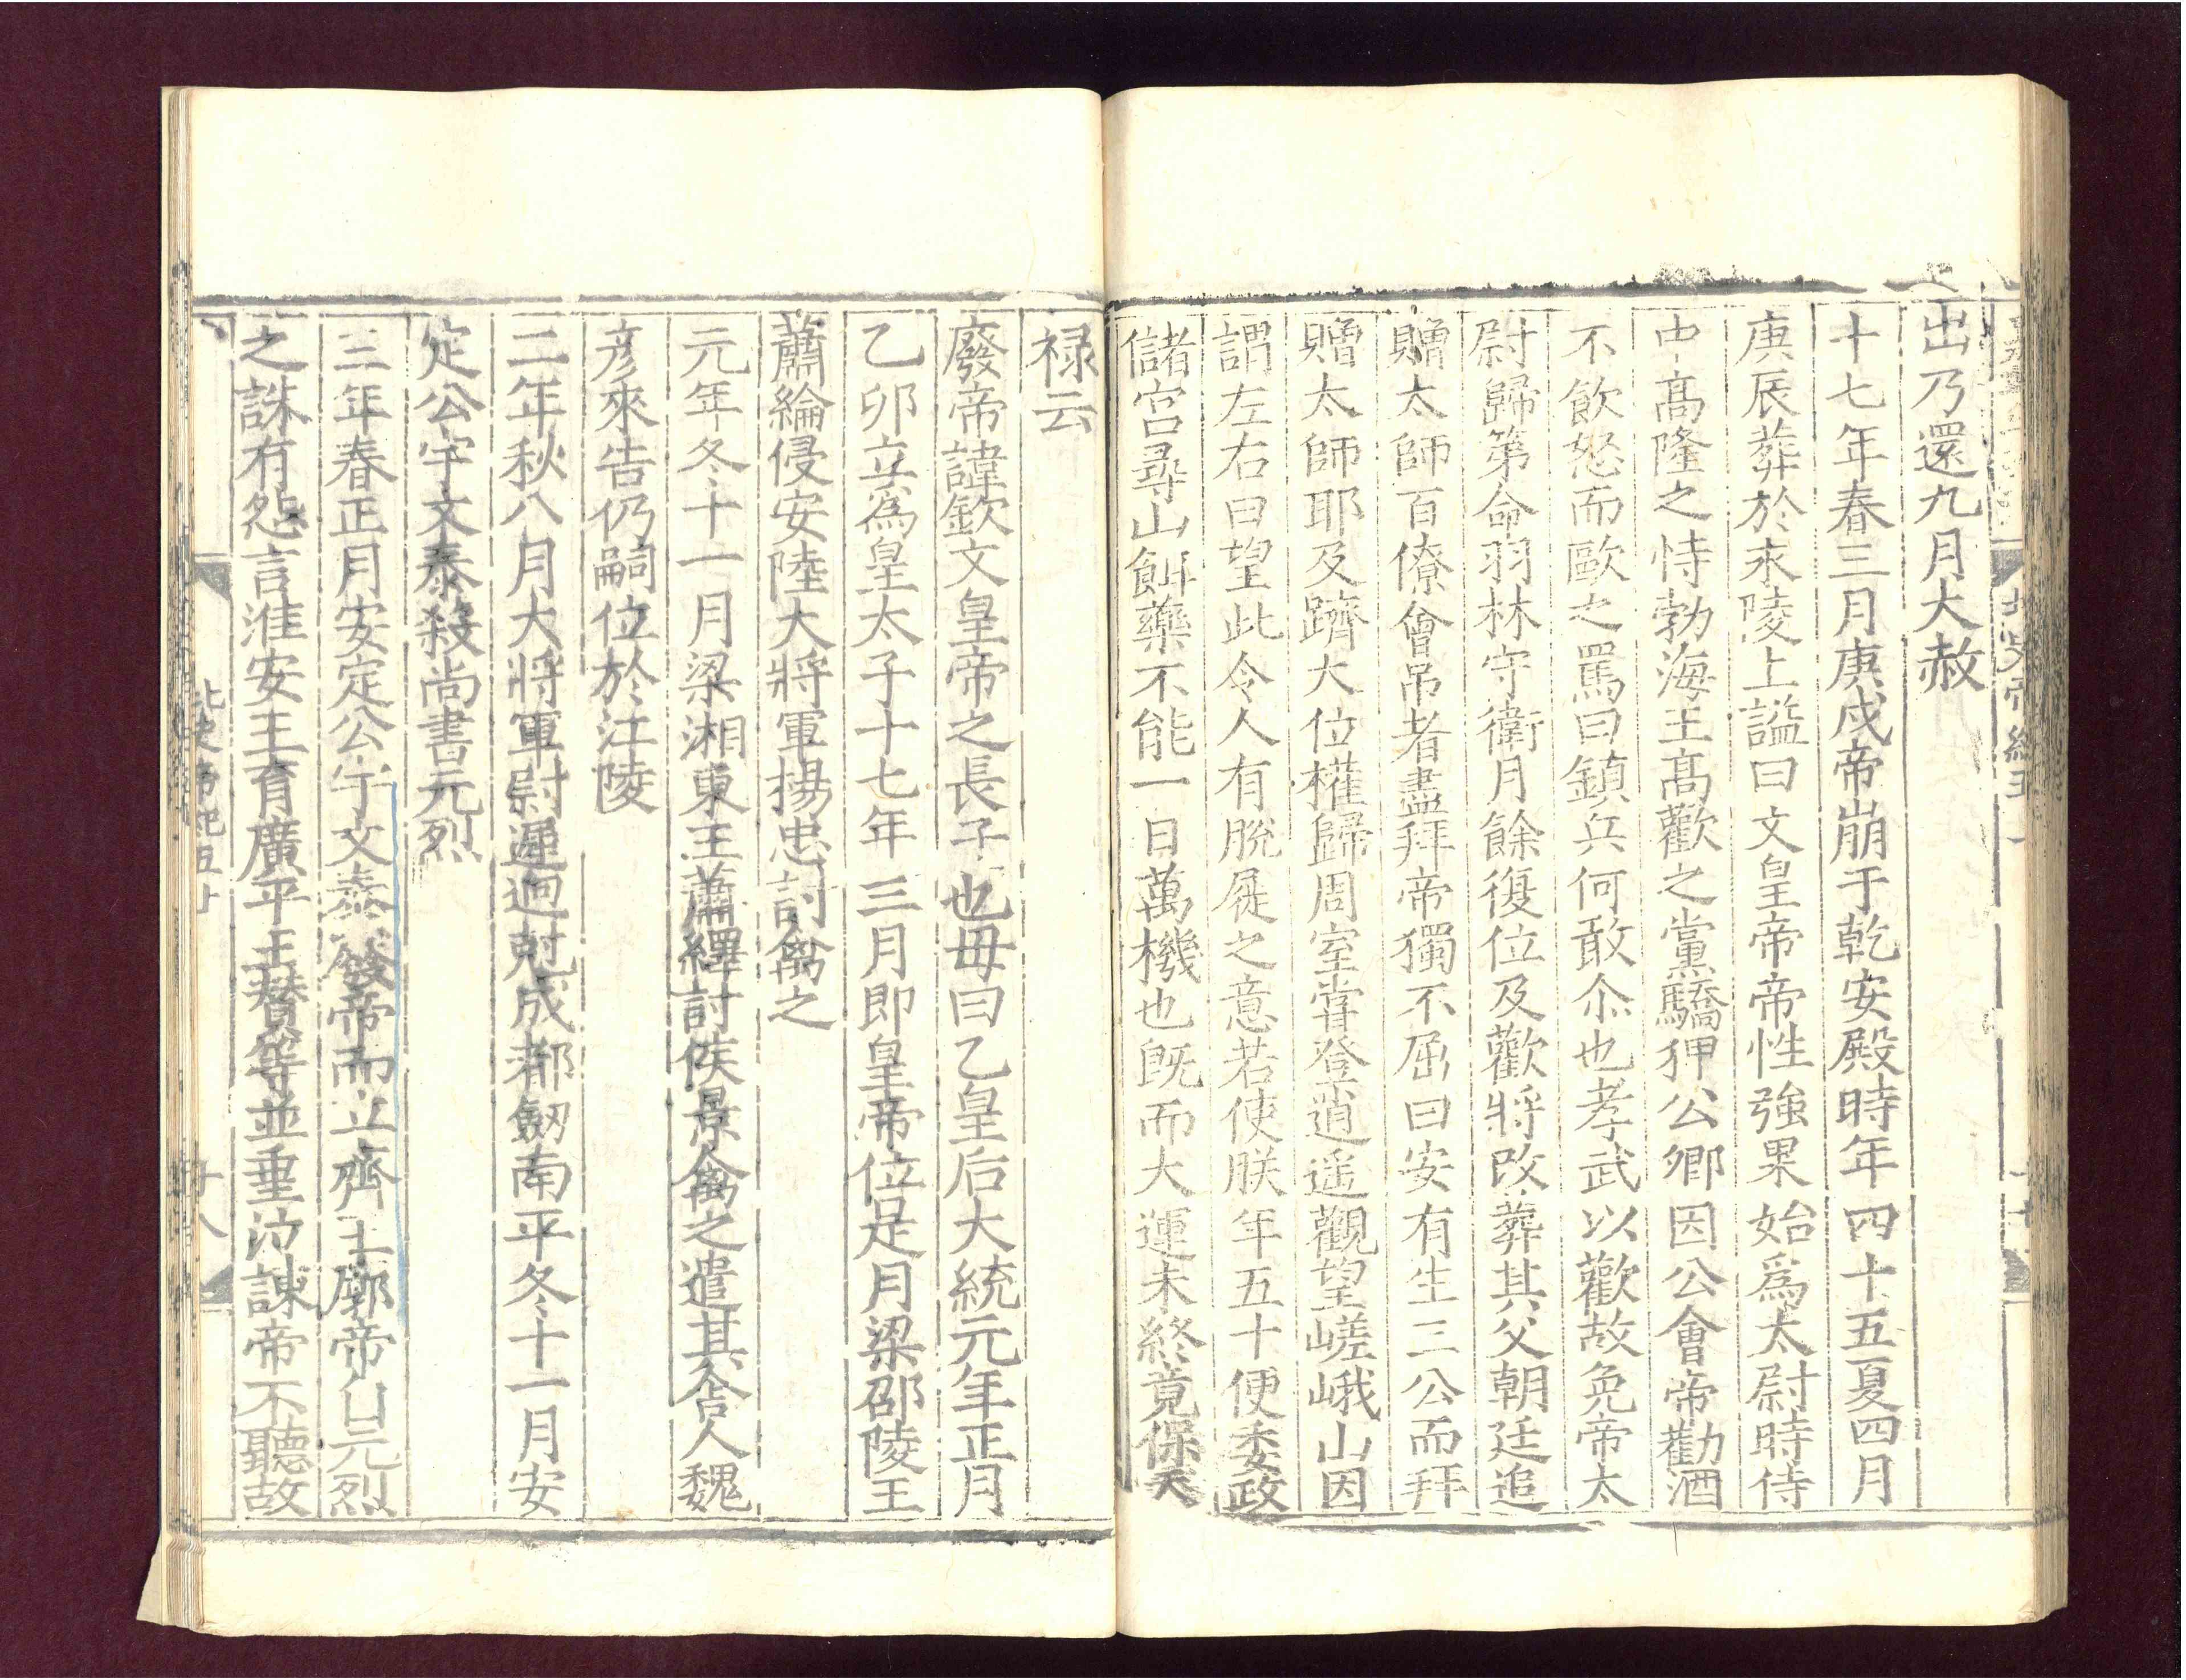 出乃還九月大赦
十七年春三月庚戌帝崩于乾安殿時年四十五夏四月
庚辰葬於永陵上謚曰文皇帝帝性強果始爲太尉時侍
中高隆之恃勃海王高歡之黨驕狎公卿因公會帝勸酒
不飲怒而歐之罵曰鎮兵何敢尒也孝武以歡故免帝太
尉歸第命羽林守衛月餘復位及歡將改葬其父朝廷追
贈太師百僚會吊者盡拜帝獨不屈曰安有生三公而拜
贈太師耶及躋大位權歸周室嘗登逍遥觀望嵯峨山因
謂左右曰望此令人有脫屣之意若使朕年五十便委政
儲宮尋山餌藥不能一日萬機也旣而大運未終竟保天
禄云
廢帝諱欽文皇帝之長子也毋曰乙皇后大統元年正月
乙卯立爲皇太子十七年三月即皇帝位是月梁邵陵王
蕭綸侵安陸大將軍揚忠討禽之
元年冬十一月梁湘東王蕭繹討侯景禽之遣其舍人魏
彦來告仍嗣位於江陵
二年秋八月大將軍尉遲迥尅成都劒南平冬十一月安
定公宇文泰殺尚書元烈
三年春正月安定公宇文泰廢帝而立齊王廓帝自元烈
之誅有怨言淮安王育廣平王贊等並垂泣諫帝不聽故
北史帝紀五